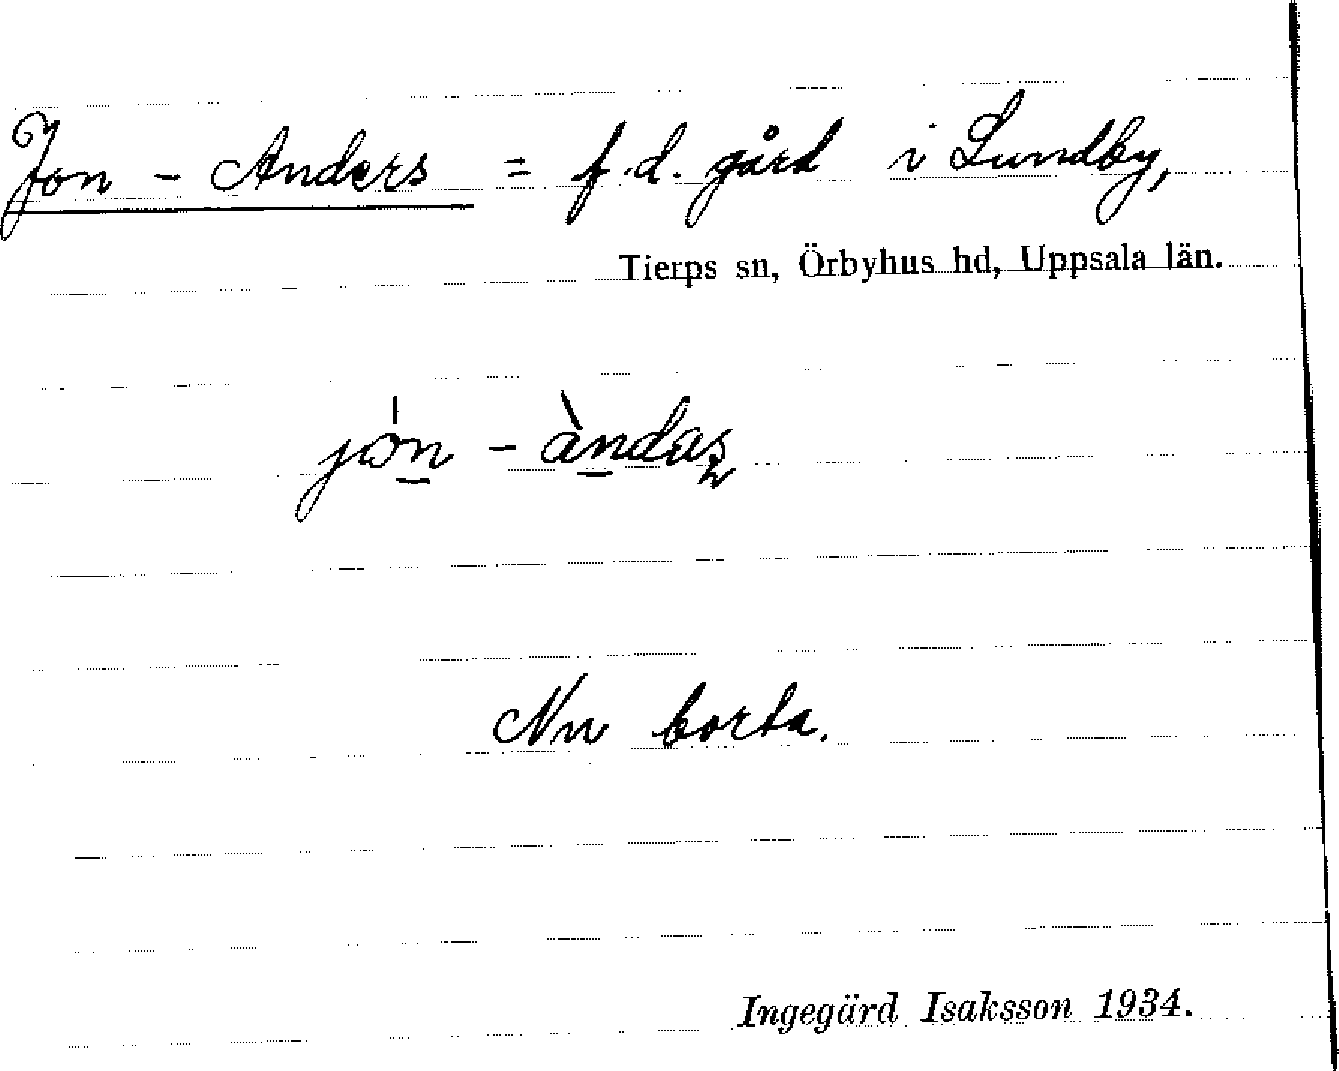 Jon - Anders = f.d. gård i Lundby,
Tierps sn, Örbyhus hd, Uppsala län.
jòn - àndaʂ
Nu borta.
Ingegärd Isaksson 1934.